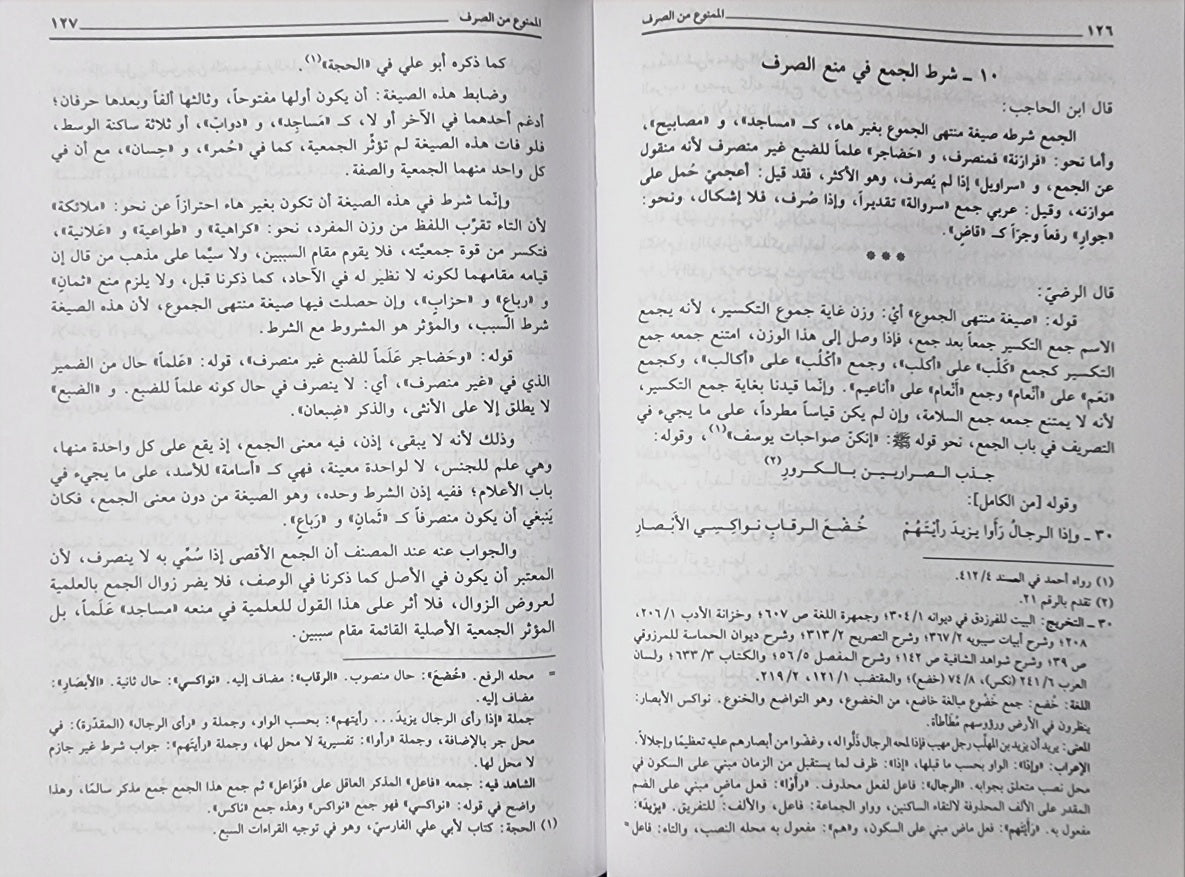 ١٢٦ الممنوع من الصرف
١٠ ـ شرط الجمع في منع الصرف
قال ابن الحاجب:
الجمع شرطه صيغة منتهى الجموع بغير هاء، كـ «مساجد»، و «مصابيح»،
وأما نحو: «فرازنة» فمنصرف، و «حَضاجر» علماً للضبع غير منصرف لأنه منقول
عن الجمع، و «سراويل» إذا لم يُصرف، وهو الأكثر، فقد قيل: أعجميّ حُمل على
موازنه، وقيل: عربي جمع «سروالة» تقديراً، وإذا صُرف، فلا إشكال، ونحو:
«جوارٍ» رفعاً وجرّاً كـ «قاضٍ».
***
قال الرضيّ:
قوله: «صيغة منتهى الجموع» أيْ: وزن غاية جموع التكسير، لأنه يجمع
الاسم جمع التكسير جمعاً بعد جمع، فإذا وصل إلى هذا الوزن، امتنع جمعه جمع
التكسير كجمع «كَلْب» على «أكلب»، وجمع «أكْلُب» على «أكالب»، وكجمع
«نَعَم» على «أنْعام» وجمع «أنْعام» على «أناعيم». وإنّما قيدنا بغاية جمع التكسير،
لأنه لا يمتنع جمعه جمع السلامة، وإن لم يكن قياساً مطرداً، على ما يجيء في
التصريف في باب الجمع، نحو قوله ﷺ: «إنكنّ صواحبات يوسف»(١)، وقوله:
جـذب الـصـراريـيـن بـالـكـرورِ(٢)
وقوله [من الكامل]:
٣٠ ـ وإذا الرجالُ رَأَوا يزيدَ رأيتَهُمْ خُضُعَ الرقابِ نواكِسِي الأبصارِ
(١) رواه أحمد في المسند ٤١٢/٤.
(٢) تقدم بالرقم ٢١.
٣٠ ـ التخريج: البيت للفرزدق في ديوانه ٣٠٤/١؛ وجمهرة اللغة ص ٦٠٧؛ وخزانة الأدب ٢٠٦/١،
٢٠٨؛ وشرح أبيات سيبويه ٣٦٧/٢؛ وشرح التصريح ٣١٣/٢؛ وشرح ديوان الحماسة للمرزوقي
ص ٣٩؛ وشرح شواهد الشافية ص ١٤٢؛ وشرح المفصل ٥٦/٥؛ والكتاب ٦٣٣/٣؛ ولسان
العرب ٢٤١/٦ (نكس)، ٧٤/٨ (خضع)؛ والمقتضب ١٢١/١، ٢١٩/٢.
اللغة: خُضُع: جمع خَضُوع مبالغة خاضع، من الخضوع، وهو التواضع والخنوع. نواكس الأبصار:
ينظرون في الأرض ورؤوسهم مُطأطأة.
المعنى: يريد أن يزيد بن المهلّب رجل مهيب فإذا لمحه الرجال ذلّوا له، وغضّوا من أبصارهم عليه تعظيمًا وإجلالاً.
الإعراب: «وإذا»: الواو بحسب ما قبلها، «إذا»: ظرف لما يستقبل من الزمان مبني على السكون في
محل نصب متعلق بجوابه. «الرجال»: فاعل لفعل محذوف. «رأَوْا»: فعل ماض مبني على الضم
المقدر على الألف المحذوفة لالتقاء الساكنين، وواو الجماعة: فاعل، والألف: للتفريق. «يزيد»:
مفعول به. «رأيتهم»: فعل ماض مبني على السكون، و«هم»: مفعول به محله النصب، والتاء: فاعل =
الممنوع من الصرف ١٢٧
كما ذكره أبو علي في «الحجة»(١).
وضابط هذه الصيغة: أن يكون أولها مفتوحاً، وثالثها ألفاً وبعدها حرفان؛
أدغم أحدهما في الآخر أو لا، كـ «مَساجِد»، و «دوابّ»، أو ثلاثة ساكنة الوسط،
فلو فات هذه الصيغة لم تؤثّر الجمعية، كما في «حُمر»، و «حِسان»، مع أن في
كل واحد منهما الجمعية والصفة.
وإنّما شرط في هذه الصيغة أن تكون بغير هاء احترازاً عن نحو: «ملائكة»
لأن التاء تقرّب اللفظ من وزن المفرد، نحو: «كراهية» و «طواعية» و «عَلانية»،
فتكسر من قوة جمعيتّه، فلا يقوم مقام السببين، ولا سيّما على مذهب من قال إن
قيامه مقامهما لكونه لا نظير له في الآحاد، كما ذكرنا قبل، ولا يلزم منع «ثمانٍ»
و «رباعٍ» و «حزابٍ»، وإن حصلت فيها صيغة منتهى الجموع، لأن هذه الصيغة
شرط السبب، والمؤثر هو المشروط مع الشرط.
قوله: «وحَضاجر عَلَماً للضبع غير منصرف»، قوله: «عَلماً» حال من الضمير
الذي في «غير منصرف»، أي: لا ينصرف في حال كونه علماً للضبع. و «الضبع»
لا يطلق إلا على الأنثى، والذكر «ضِبعان».
وذلك لأنه لا يبقى، إذن، فيه معنى الجمع، إذ يقع على كل واحدة منها،
وهي علم للجنس، لا لواحدة معينة، فهي كـ «أسامة» للأسد، على ما يجيء في
باب الأعلام؛ ففيه إذن الشرط وحده، وهو الصيغة من دون معنى الجمع، فكان
يَنبغي أن يكون منصرفاً كـ «ثَمانٍ» و «رَباعٍ».
والجواب عنه عند المصنف أن الجمع الأقصى إذا سُمّي به لا ينصرف، لأن
المعتبر أن يكون في الأصل كما ذكرنا في الوصف، فلا يضر زوال الجمع بالعلمية
لعروض الزوال، فلا أثر على هذا القول للعلمية في منعه «مساجد» عَلَماً، بل
المؤثر الجمعية الأصلية القائمة مقام سببين.
= محله الرفع. «خُضعَ»: حال منصوب. «الرقاب»: مضاف إليه. «نواكسي»: حال ثانية. «الأبصَارِ»:
مضاف إليه.
جملة «إذا رأى الرجال يزيدَ... رأيتهم»: بحسب الواو، وجملة و «رأى الرجال» (المقدّرة): في
محل جر بالإضافة، وجملة «رأوا»: تفسيرية لا محل لها، وجملة «رأيتَهم»: جواب شرط غير جازم
لا محل لها.
الشاهد فيه: جمعه «فاعل» المذكر العاقل على «فَوَاعل» ثم جمع هذا الجمع جمع مذكر سالمًا، وهذا
واضح في قوله: «نواكسي» فهو جمع «نواكس» وهذه جمع «ناكس».
(١) الحجة: كتاب لأبي علي الفارسيّ، وهو في توجيه القراءات السبع.